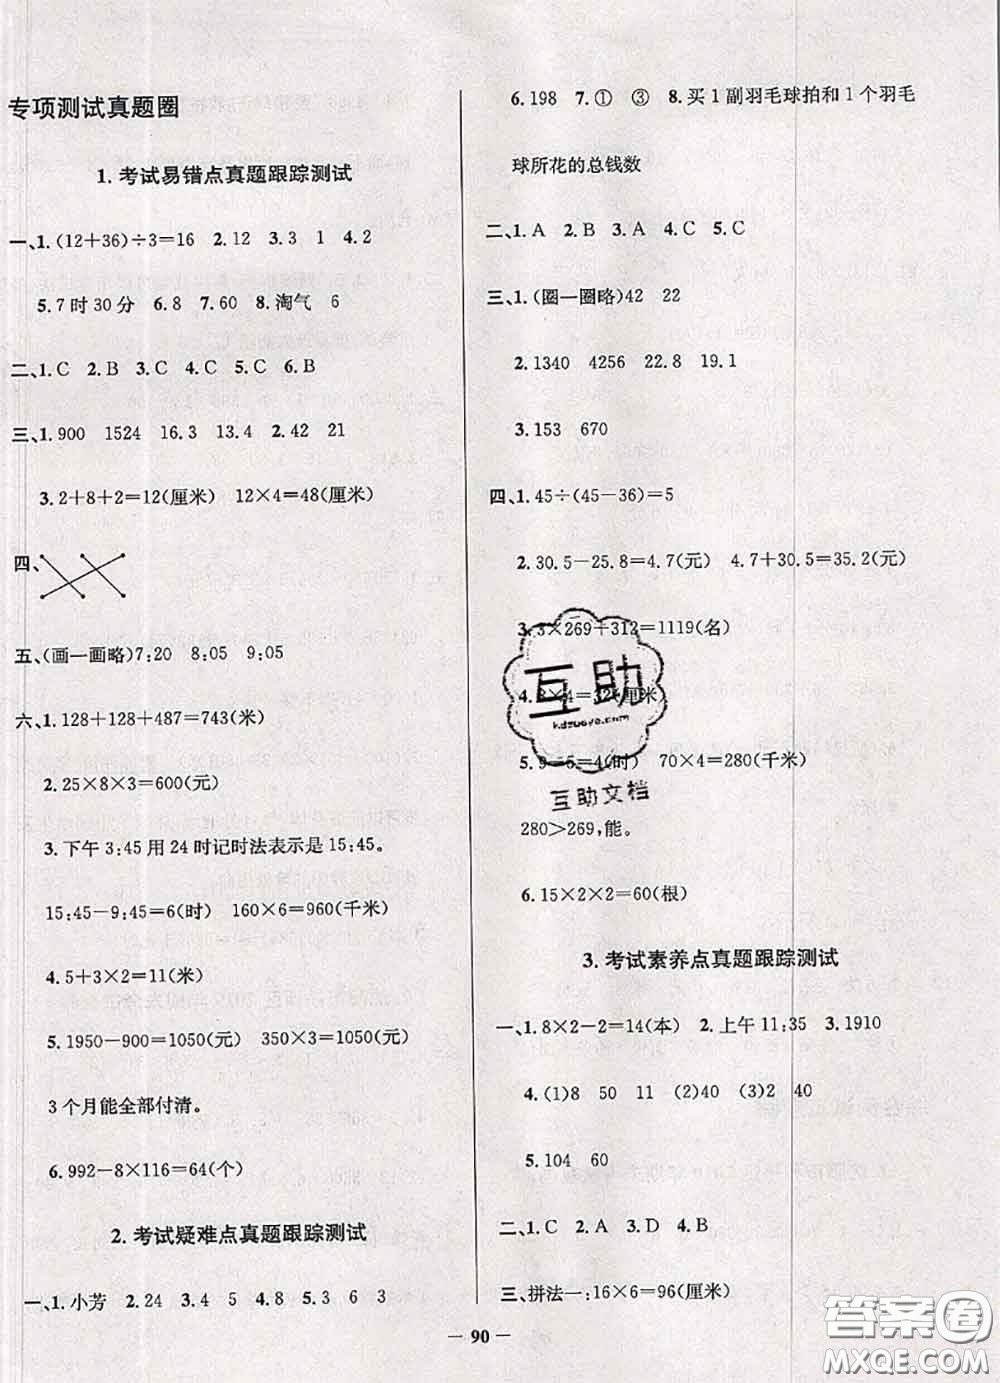 专项测试真题圈
1. 考试易错点真题跟踪测试
一、1.(12+36)÷3=16 2.12 3.3 1 4.2
5.7时30分 6.8 7.60 8.淘气 6
二、1.C 2.B 3.C 4.C 5.C 6.B
三、1.900 1524 16.3 13.4 2.42 21
3.2+8+2=12(厘米) 12×4=48(厘米)
四、
五、(画一画略)7:20 8:05 9:05
六、1.128+128+487=743(米)
2.25×8×3=600(元)
3.下午3:45用24时记时法表示是15:45。
15:45-9:45=6(时) 160×6=960(千米)
4.5+3×2=11(米)
5.1950-900=1050(元) 350×3=1050(元)
3个月能全部付清。
6.992-8×116=64(个)
2. 考试疑难点真题跟踪测试
一、1.小芳 2.24 3.4 5 4.8 5.3 6 3
6.198 7.① ③ 8.买1副羽毛球拍和1个羽毛
球所花的总钱数
二、1.A 2.B 3.A 4.C 5.C
三、1.(圈一圈略)42 22
2.1340 4256 22.8 19.1
3.153 670
四、1.45÷(45-36)=5
2.30.5-25.8=4.7(元) 4.7+30.5=35.2(元)
3.3×269+312=1119(名)
4.8×4=32(厘米)
5.9-5=4(时) 70×4=280(千米)
280>269,能。
6.15×2×2=60(根)
3. 考试素养点真题跟踪测试
一、1.8×2-2=14(本) 2.上午11:35 3.1910
4.(1)8 50 11 (2)40 (3)2 40
5.104 60
二、1.C 2.A 3.D 4.B
三、拼法一:16×6=96(厘米)
— 90 —
互助
kdzuoye.com
互助文档
答案圈
MXQE.COM